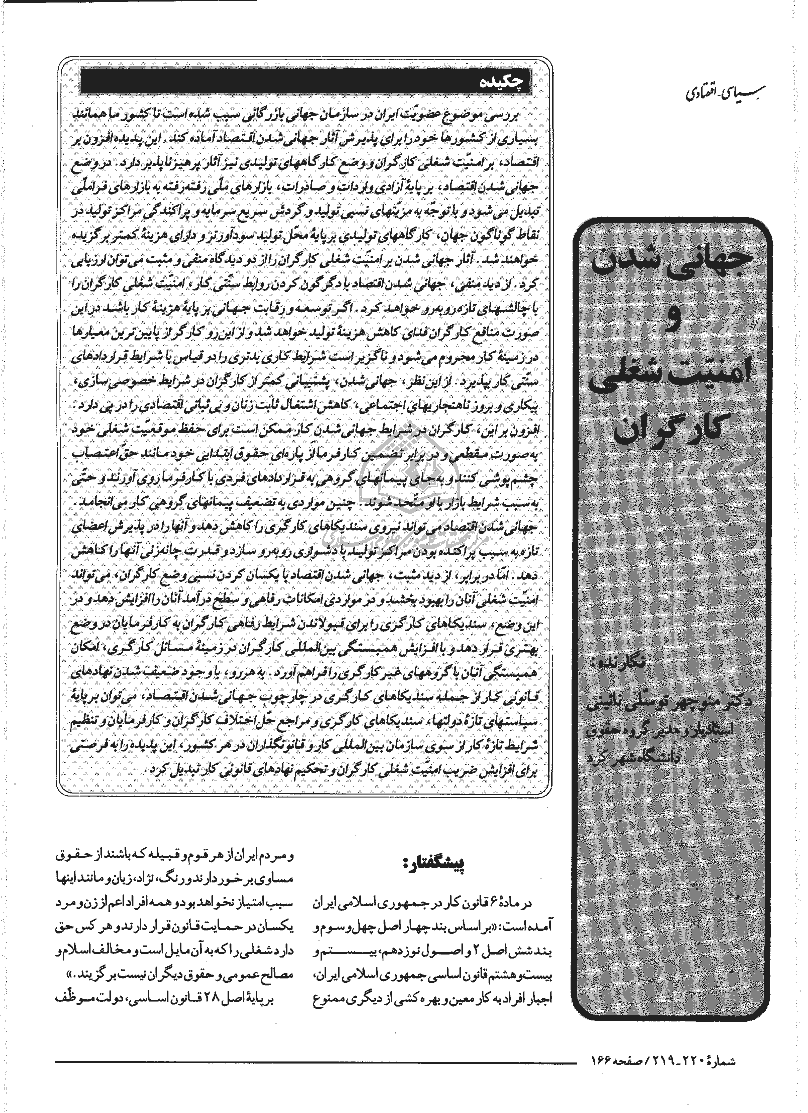 سیاسی-اقتصادی
جهانی شدن
و
امنیّت شغلی
کارگران
نگارنده:
دکتر منوچهر توسلّی نائینی
استادیار و مدیر گروه حقوق
دانشگاه شهر کرد
چکیده
بررسی موضوع عضویّت ایران در سازمان جهانی بازرگانی سبب شده است تا کشور ما همانند
بسیاری از کشورها خود را برای پذیرش آثار جهانی شدن اقتصاد آماده کند. این پدیده افزون بر
اقتصاد، بر امنیّت شغلی کارگران و وضع کارگاههای تولیدی نیز آثار پرهیزناپذیر دارد. در وضع
جهانی شدن اقتصاد، بر پایهٔ آزادی واردات و صادرات، بازارهای ملّی رفته‌رفته به بازارهای فراملّی
تبدیل می‌شود و با توجّه به مزیّتهای نسبی تولید و گردش سریع سرمایه و پراکندگی مراکز تولید در
نقاط گوناگون جهان، کارگاههای تولیدی بر پایهٔ محّل تولید سودآورتر و دارای هزینهٔ کمتر برگزیده
خواهند شد. آثار جهانی شدن بر امنیّت شغلی کارگران را از دو دیدگاه منفی و مثبت می‌توان ارزیابی
کرد. از دید منفی، جهانی شدن اقتصاد با دگرگون کردن روابط سنّتی کار، امنیّت شغلی کارگران را
با چالشهای تازه روبه‌رو خواهد کرد. اگر توسعه و رقابت جهانی بر پایهٔ هزینهٔ کار باشد در این
صورت منافع کارگران فدای کاهش هزینهٔ تولید خواهد شد و از این‌رو کارگر از پایین‌ترین معیارها
در زمینهٔ کار محروم می‌شود و ناگزیر است شرایط کاری بدتری را در قیاس با شرایط قراردادهای
سنّتی کار بپذیرد. از این نظر، جهانی شدن، پشتیبانی کمتر از کارگران در شرایط خصوصی‌سازی،
بیکاری و بروز ناهنجاریهای اجتماعی، کاهش اشتغال ثابت زنان و بی‌ثباتی اقتصادی را در پی دارد؛
افزون بر این، کارگران در شرایط جهانی شدن کار ممکن است برای حفظ موقعیّت شغلی خود
به صورت مقطعی و در برابر تضمین کارفرما از پاره‌ای حقوق ابتدایی خود مانند حقّ اعتصاب
چشم‌پوشی کنند و به جای پیمانهای گروهی به قراردادهای فردی با کارفرما روی آورند و حتّی
به سبب شرایط بازار با او متّحد شوند. چنین مواردی به تضعیف پیمانهای گروهی کار می‌انجامد.
جهانی شدن اقتصاد می‌تواند نیروی سندیکاهای کارگری را کاهش دهد و آنها را در پذیرش اعضای
تازه به سبب پراکنده بودن مراکز تولید با دشواری روبه‌رو سازد و قدرت چانه‌زنی آنها را کاهش
دهد. امّا در برابر، از دید مثبت، جهانی شدن اقتصاد با یکسان کردن نسبی وضع کارگران، می‌تواند
امنیّت شغلی آنان را بهبود بخشد و در مواردی امکانات رفاهی و سطح درآمد آنان را افزایش دهد و در
این وضع، سندیکاهای کارگری را برای قبولاندن شرایط رفاهی کارگران به کارفرمایان در وضع
بهتری قرار دهد و با افزایش همبستگی بین‌المللی کارگران در زمینهٔ مسائل کارگری، امکان
همبستگی آنان با گروههای غیر کارگری را فراهم آورد. به هر رو، با وجود ضعیف شدن نهادهای
قانونی کار از جمله سندیکاهای کارگری در چارچوب جهانی شدن اقتصاد، می‌توان بر پایهٔ
سیاستهای تازهٔ دولتها، سندیکاهای کارگری و مراجع حلّ اختلاف کارگران و کارفرمایان و تنظیم
شرایط تازهٔ کار از سوی سازمان بین‌المللی کار و قانونگذاران در هر کشور، این پدیده را به فرصتی
برای افزایش ضریب امنیّت شغلی کارگران و تحکیم نهادهای قانونی کار تبدیل کرد.
پیشگفتار:
در مادهٔ ۶ قانون کار در جمهوری اسلامی ایران
آمده است: «بر اساس بند چهار اصل چهل و سوم و
بند شش اصل ۲ و اصول نوزدهم، بیستم و
بیست و هشتم قانون اساسی جمهوری اسلامی ایران،
اجبار افراد به کار معین و بهره کشی از دیگری ممنوع
و مردم ایران از هر قوم و قبیله که باشند از حقوق
مساوی برخوردارند و رنگ، نژاد، زبان و مانند اینها
سبب امتیاز نخواهد بود و همه افراد اعم از زن و مرد
یکسان در حمایت قانون قرار دارند و هر کس حق
دارد شغلی را که به آن مایل است و مخالف اسلام و
مصالح عمومی و حقوق دیگران نیست برگزیند.»
بر پایهٔ اصل ۲۸ قانون اساسی، دولت موظّف
شمارهٔ ۲۲۰-۲۱۹/صفحه ۱۶۶